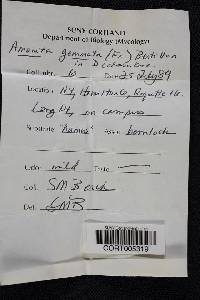 SUNY CORTLAND
Department of Biology (Mycology)
Amanita gemmata (Fr.) Bertillon
in Dechambre.
Coll. nbr. 6 Date 25 July 89
Location NY, Hamilton Co, Raquette Lk.
on campus
Substrate "humus" Assn hemlock
Odor mild Taste
Coll. SM Beach
Det.
CORT006319